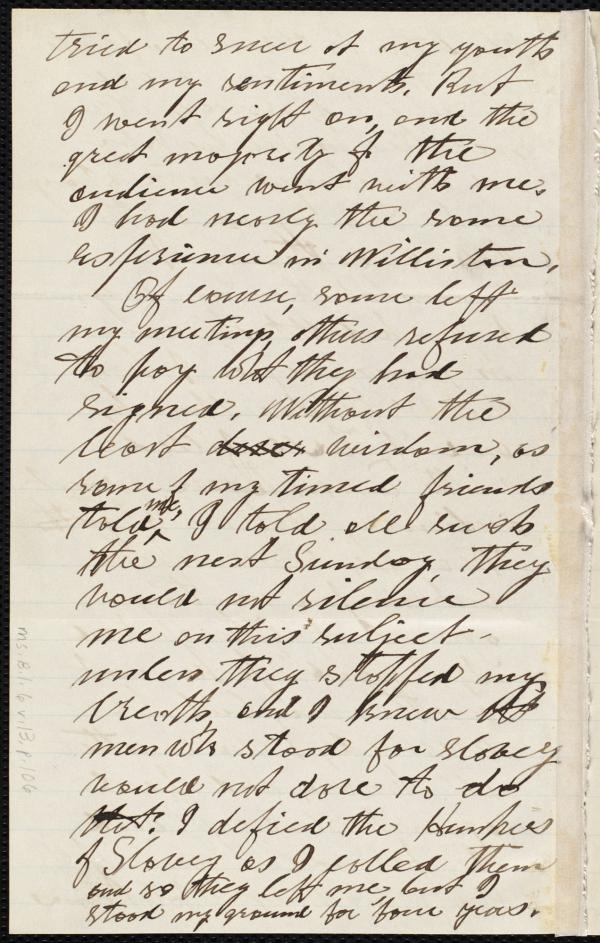 tried to sneer at my youth
and my sentiments. But
I went right on, and the
great majority of the
audience went with me.
I had nearly the same
experience in Williston.
Of course, some left
my meeting, others refused
to pay what they had
signed. Without the
least wisdom, as
some of my timid friends
told me, I told all such
the next Sunday, they
would not silence
me on this subject -
unless they stopped my
breath, and I knew
men who stood for slavery
would not dare to do
that. I defied the
of Slavery as I called them
and so they left me but I
stood my ground for four years.
ms.B.1.6 v.13, p.106